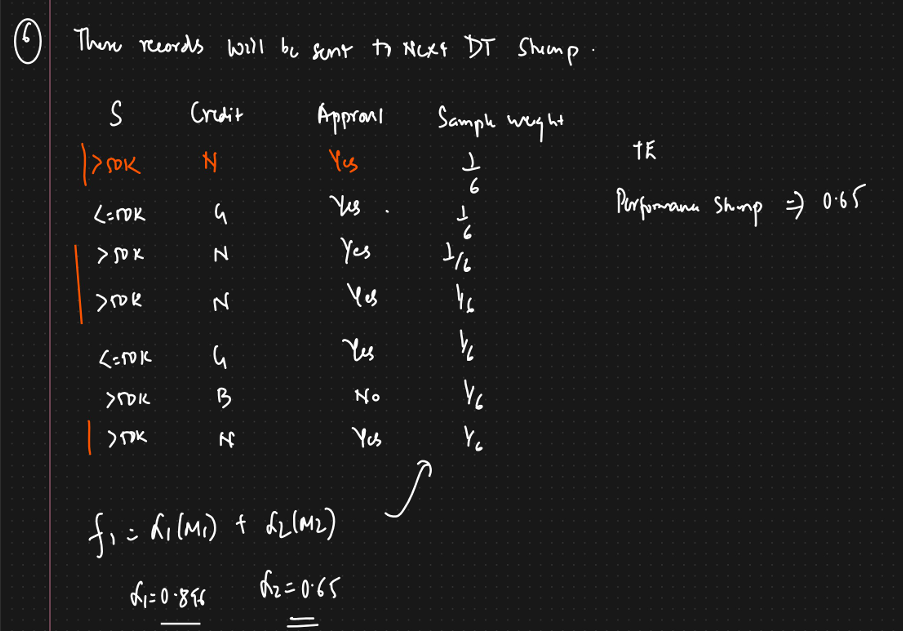 6 These records will be sent to Next DT Stump.
S Credit Approval Sample weight
>50K N Yes 1/6
<=50K G Yes 1/6
>50K N Yes 1/6
>50K N Yes 1/6
<=50K G Yes 1/6
>50K B No 1/6
>50K N Yes 1/6
TE
Performance Stump => 0.65
f1 = α1(M1) + α2(M2)
α1=0.896 α2=0.65